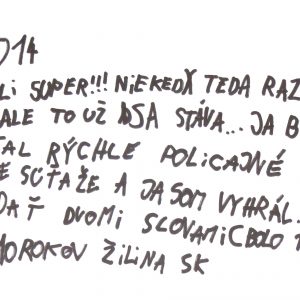 014
LI SUPER!!! NIEKEDY TEDA RAZ
ALE TO UŽ SA STÁVA... JA B
AL RÝCHLE POLICAJNÉ
É SÚŤAŽE A JA SOM VYHRÁL.
DAŤ DVOMI SLOVAMI BOLO
OROKOV ŽILINA SK